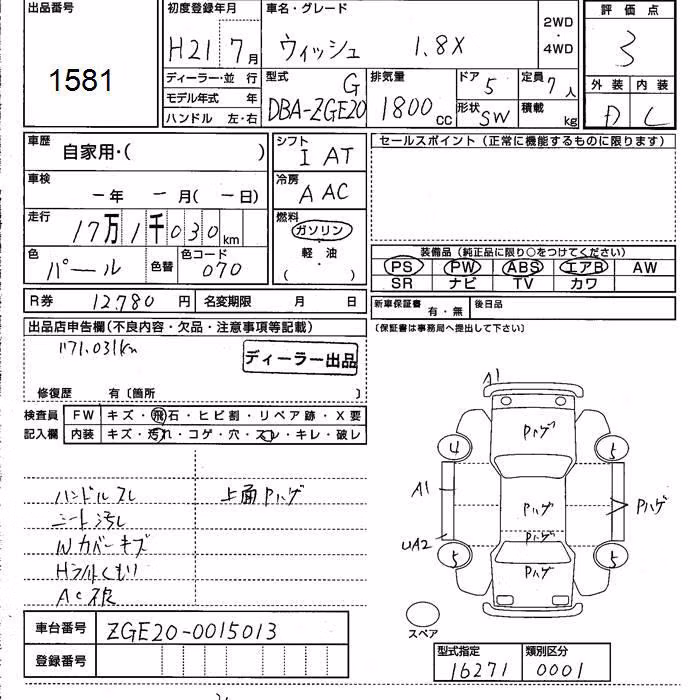 出品番号 1581
初度登録年月 H21 7月
車名・グレード ウィッシュ 1.8X
2WD・4WD
評価点 3
ディーラー・並行
モデル年式 年
ハンドル 左・右
型式 G DBA-ZGE20
排気量 1800cc
ドア 5
形状 SW
定員 7人
積載 kg
外装 内装
D C
車歴 自家用・( )
車検 ー年 ー月(ー日)
走行 17万1千030km
色 パール 色替 色コード 070
シフト I AT
冷房 A AC
燃料 ガソリン・軽油・( )
セールスポイント(正常に機能するものに限ります)
装備品(純正品に限り○をつけてください)
PS PW ABS エアB AW
SR ナビ TV カワ
R券 12.780円 名変期限 月 日
新車保証書 有・無 後日品
(保証書は事務局へ提出して下さい)
出品店申告欄(不良内容・欠品・注意事項等記載)
171.031km
ディーラー出品
修復歴 有〔箇所 〕
検査員 FW キズ・飛石・ヒビ割・リペア跡・X要
記入欄 内装 キズ・汚れ・コゲ・穴・スレ・キレ・破レ
ハンドルスレ 上面Pハゲ
シート汚レ
Wカバーキズ
Hライトくもり
AC不良
A1
Pハゲ
4 5
A1 Pハゲ Pハゲ
UA2 Pハゲ
5 Pハゲ 5
スペア
車台番号 ZGE20-0015013
登録番号
型式指定 16271
類別区分 0001